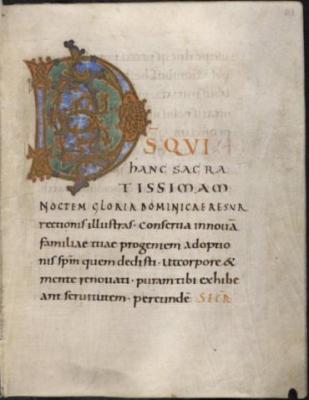 D̅S QUI
HANC SACRA
TISSIMAM
NOCTEM GLORIA DOMINICAE RESUR
rectionis illustras · Conserva innova
familiae tuae progeniem adoptio
nis sp̅m quem dedisti · Ut corpore &
mente renovati · puram tibi exhibe
ant servitutem · per eunde̅ SICR